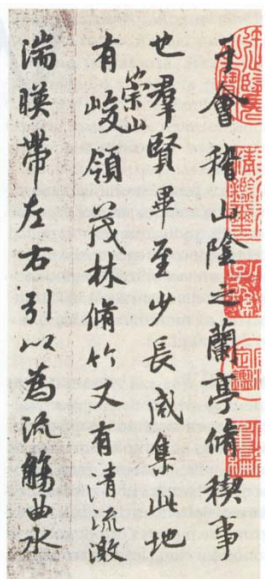 于會稽山陰之蘭亭脩稧事
也羣賢畢至少長咸集此地
有崇山峻領茂林脩竹又有清流激
湍暎帶左右引以為流觴曲水